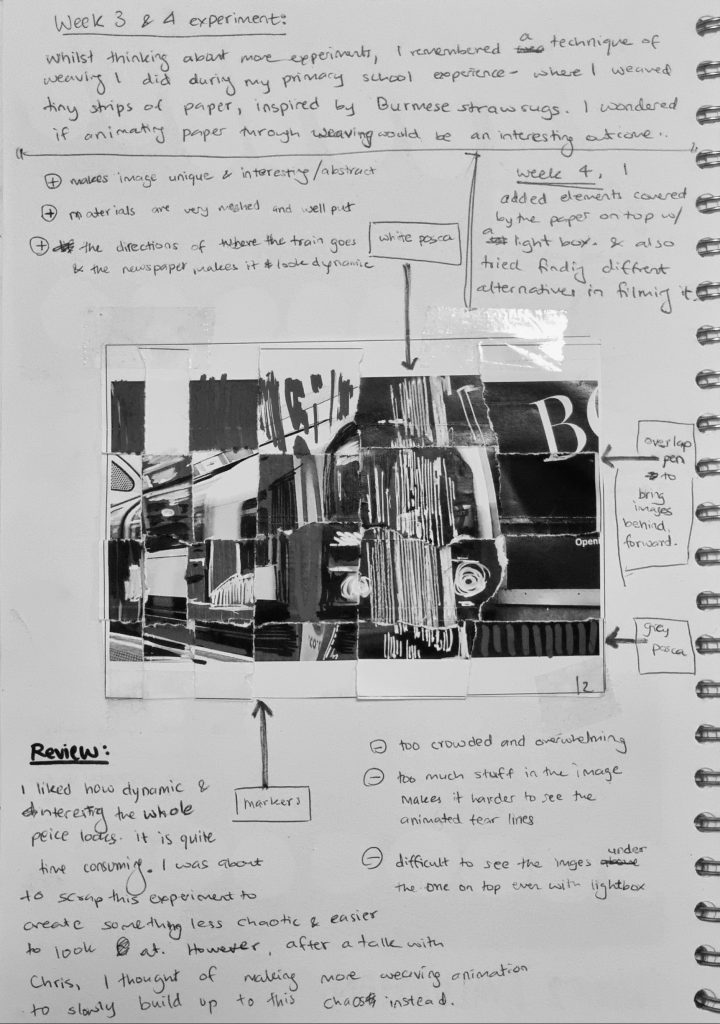 Week 3 & 4 experiment:
Whilst thinking about more experiments, I remembered a technique of
weaving I did during my primary school experience - where I weaved
tiny strips of paper, inspired by Burmese straw rugs. I wondered
if animating paper through weaving would be an interesting outcome..
+ makes image unique & interesting/abstract
+ materials are very meshed and well put
+ the directions of where the train goes
& the newspaper, makes it look dynamic
white posca
Week 4, I
added elements covered
by the paper on top w/
a light box. & also
tried findig diffrent
alternatives in filmig it.
BO
Openi
12
overlap
pen
to
bring
images
behind,
forward.
grey
posca
markers
Review:
I liked how dynamic &
interestig the whole
peice looks. it is quite
time consumig. I was about
to scrap this experiment to
create something less chaotic & easier
to look at. However, after a talk with
Chris, I thought of making more weaving animation
to slowly build up to this chaos instead.
- too crowded and overwhelming
- too much stuff in the image
makes it harder to see the
animated tear lines
- difficult to see the imges under
the one on top even with lightbox